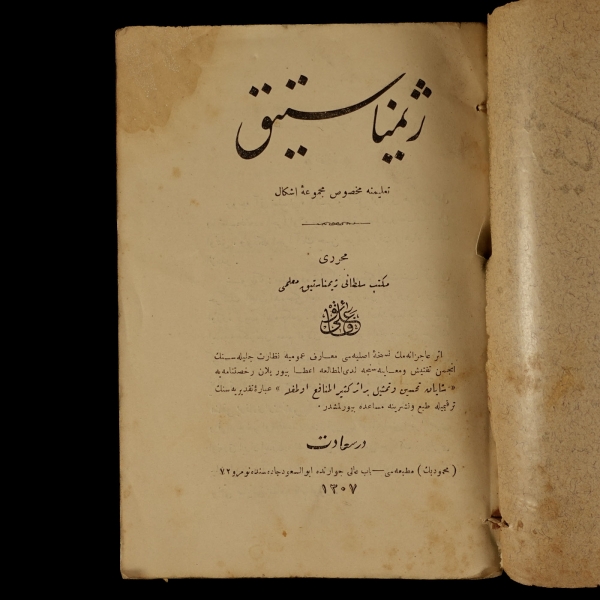 ژیمناستیق
تعلیمنه مخصوص مجموعهٔ اشکال
محرری
مکتب سلطانی ژیمناستیق معلمی
علی فائق
اثر عاجزانه‌مك نسخهٔ اصلیه‌سی معارف عمومیه نظارت جلیله‌سنك
انجمن تفتیش ومعاینه‌سنجه لدی‌المطالعه اعطا بیوریلان رخصتنامه‌یه
« شایان تحسین وتمثیل براثر کثیرالمنافع اولمغله » عبارهٔ تقدیریه‌سنك
ترقیمیله طبع ونشرینه مساعده بیورلمشدر ·
درسعادت
( محمودبك ) مطبعه‌سی — باب عالی جوارنده ابوالسعود جاده‌سنده نومرو ۷۲
۱۳۰۷